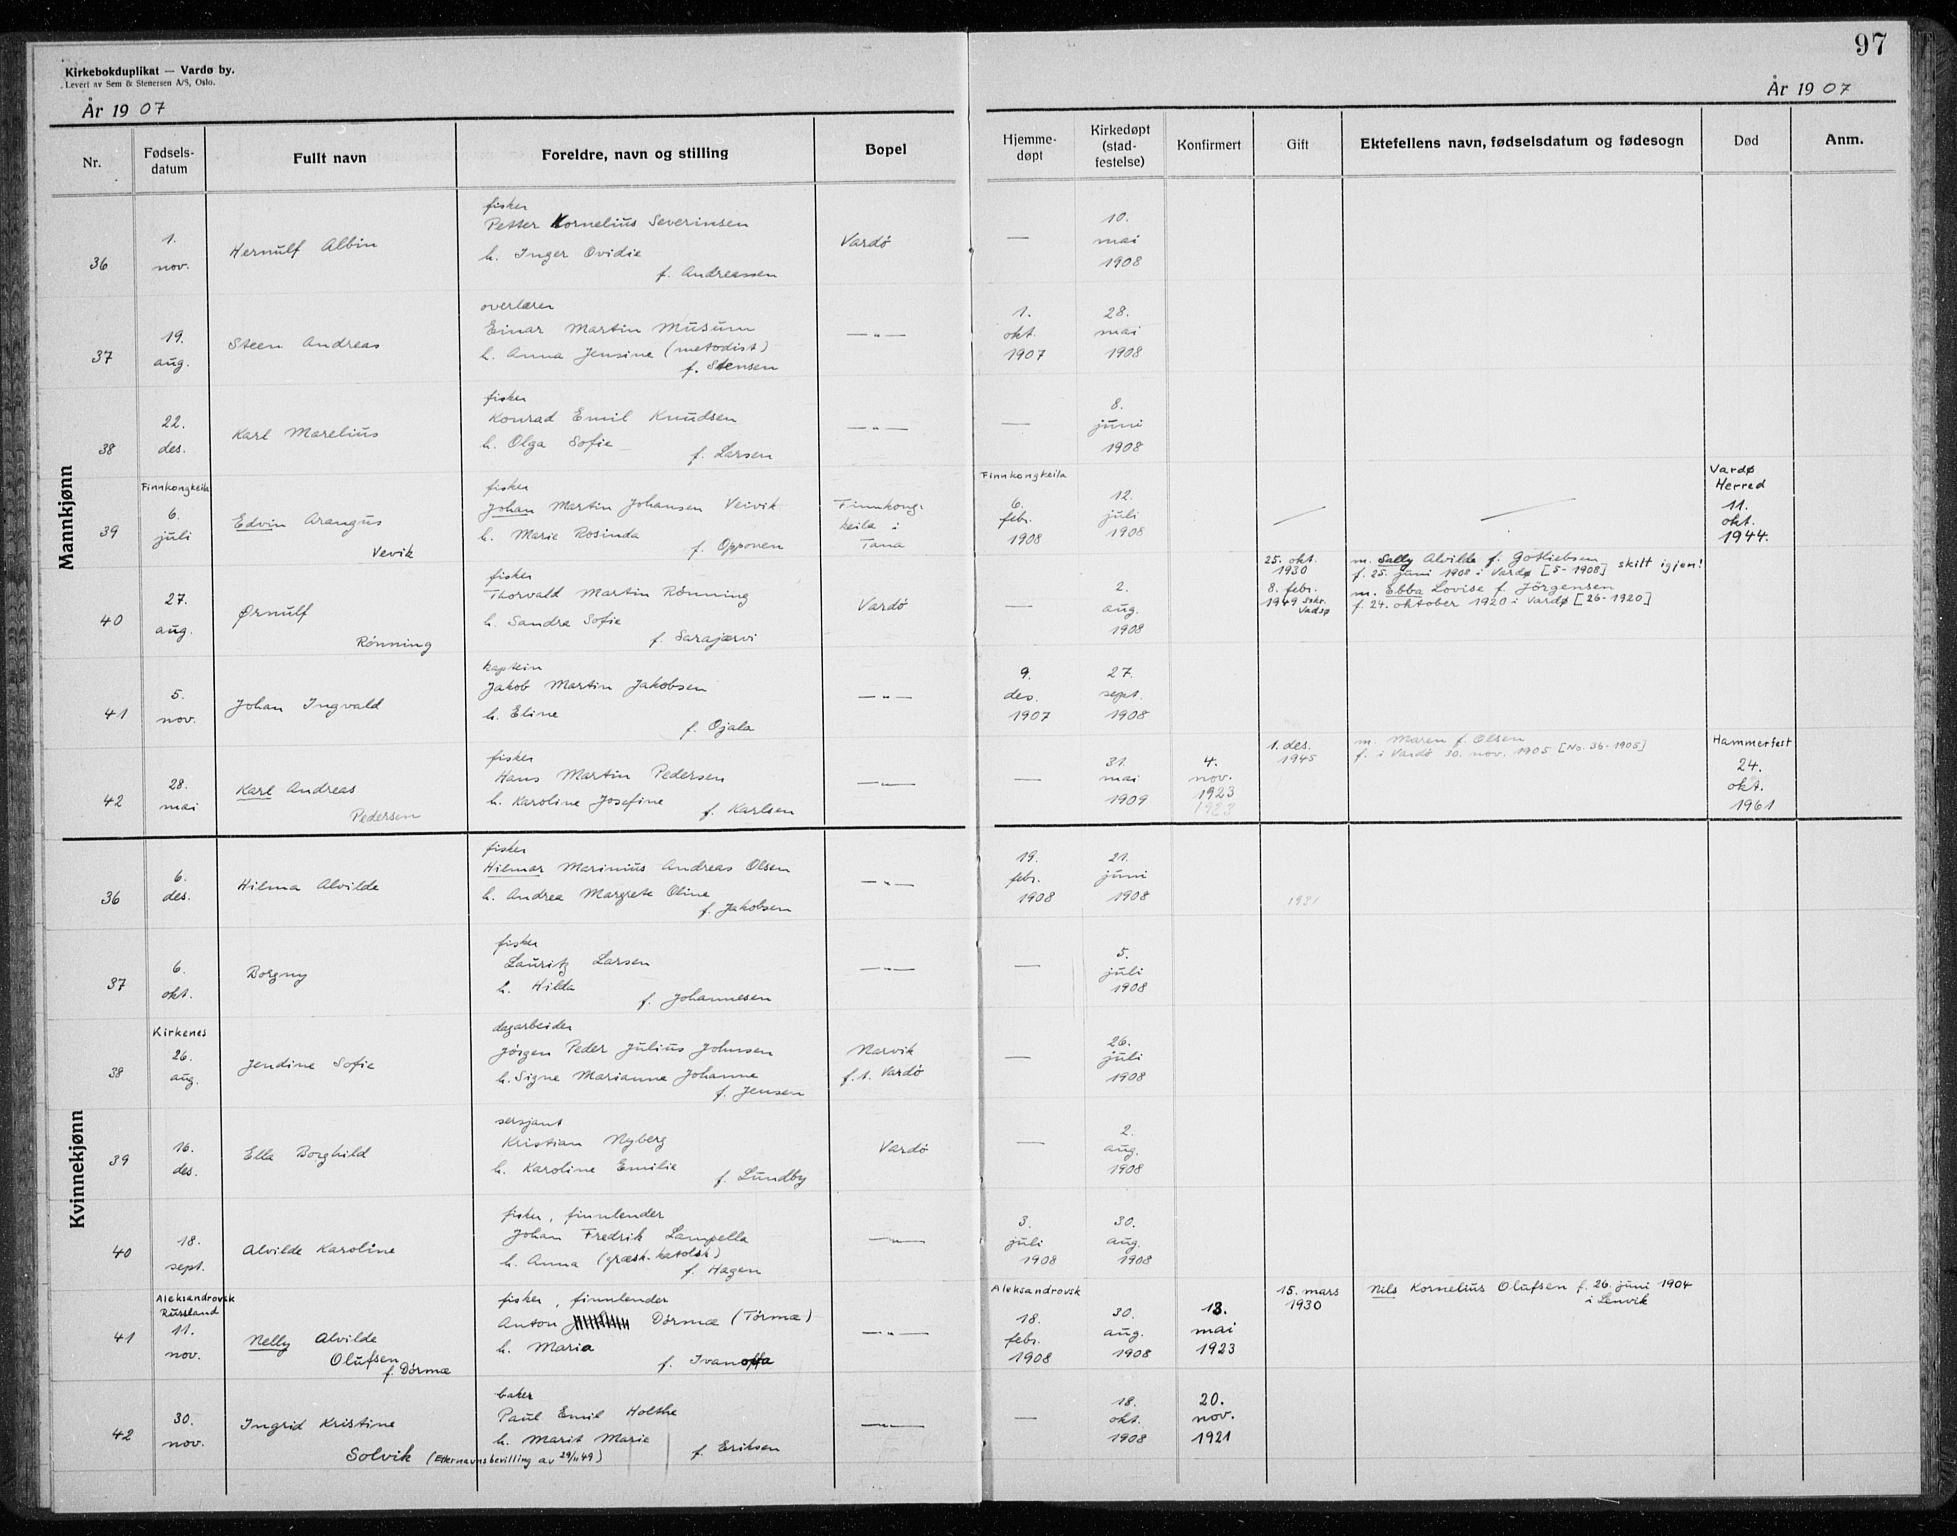 97
Kirkebokduplikat — Vardø by.
Levert av Sem & Stenersen A/S, Oslo.
År 1907
År 1907
Nr.
Fødsels-
datum
Fullt navn
Foreldre, navn og stilling
Bopel
Hjemme-
døpt
Kirkedøpt
(stad-
festelse)
Konfirmert
Gift
Ektefellens navn, fødselsdatum og fødesogn
Død
Anm.
Mannkjønn
36
1.
nov.
Hernulf Albin
fisker
Petter Kornelius Severinsen
h. Inger Ovidie
f. Andreassen
Vardö
—
10.
mai
1908
37
19.
aug.
Steen Andreas
overlærer
Einar Martin Musum
h. Anna Jensine (metodist)
f. Stensen
— " —
1.
okt.
1907
28.
mai
1908
38
22.
des.
Karl Marelius
fisker
Konrad Emil Knudsen
h. Olga Sofie
f. Larsen
— " —
—
8.
juni
1908
39
Finnkongkeila
6.
juli
Edvin Arangus
Vevik
fisker
Johan Martin Johansen Veivik
h. Marie Rosinda
f. Opponen
Finnkong-
keila i
Tana
Finnkongkeila
6.
febr.
1908
12.
juli
1908
—
—
Vardø
Herred
11.
okt.
1944.
40
27.
aug.
Ørnulf
Rönning
fisker
Thorvald Martin Rönning
h. Sandra Sofie
f. Sarajærvi
Vardö
—
2.
aug.
1908
25. okt.
1930
8. febr.
1949 Sskr.
Vadsø
m. Sally Alvilde f. Gotliebsen
f. 25. juni 1908 i Vardø [5-1908] skilt igjen!
m. Ebba Lovise f. Jörgensen
f. 24. oktober 1920 i Vardø [26-1920]
41
5.
nov.
Johan Ingvald
kaptein
Jakob Martin Jakobsen
h. Eline
f. Ojala
— " —
9.
des.
1907
27.
sept.
1908
42
28.
mai
Karl Andreas
Pedersen
fisker
Hans Martin Pedersen
h. Karoline Josefine
f. Karlsen
— " —
—
31.
mai
1909
4.
nov.
1923
1923
1. des.
1945
m. Maren f. Olsen
f. i Vardö 30. nov. 1905 [No. 36-1905]
Hammerfest
24.
okt.
1961
Kvinnekjønn
36
6.
des.
Hilma Alvilde
fisker
Hilmar Marinius Andreas Olsen
h. Andrea Margrete Oline
f. Jakobsen
— " —
19.
febr.
1908
21.
juni
1908
1931
37
6.
okt.
Borgny
fisker
Lauritz Larsen
h. Hilda
f. Johannesen
— " —
—
5.
juli
1908
38
Kirkenes
26.
aug.
Jendine Sofie
dagarbeider
Jörgen Peder Julius Johnsen
h. Signe Marianne Johanne
f. Jensen
Narvik
f.t. Vardö
—
26.
juli
1908
39
16.
des.
Ella Borghild
sersjant
Kristian Nyberg
h. Karoline Emilie
f. Lundby
Vardö
—
2.
aug.
1908
40
18.
sept.
Alvilde Karoline
fisker, finnlender
Johan Fredrik Lampella
h. Anna (græsk-katolsk)
f. Hagen
— " —
3.
juli
1908
30.
aug.
1908
41
Aleksandrovsk
Russland
11.
nov.
Nelly Alvilde
Olufsen
f. Dörmæ
fisker, finnlender
Anton Dörmæ (Törmæ)
h. Maria
f. Ivanoffa
— " —
Aleksandrovsk
18.
febr.
1908
30.
aug.
1908
13.
mai
1923
15. mars
1930
Nils Kornelius Olufsen f. 26. juni 1904
i Lenvik
42
30.
nov.
Ingrid Kristine
Solvik (Etternavnsbevilling av 29/11 49)
baker
Paul Emil Holthe
h. Marit Marie
f. Eriksen
— " —
—
18.
okt.
1908
20.
nov.
1921